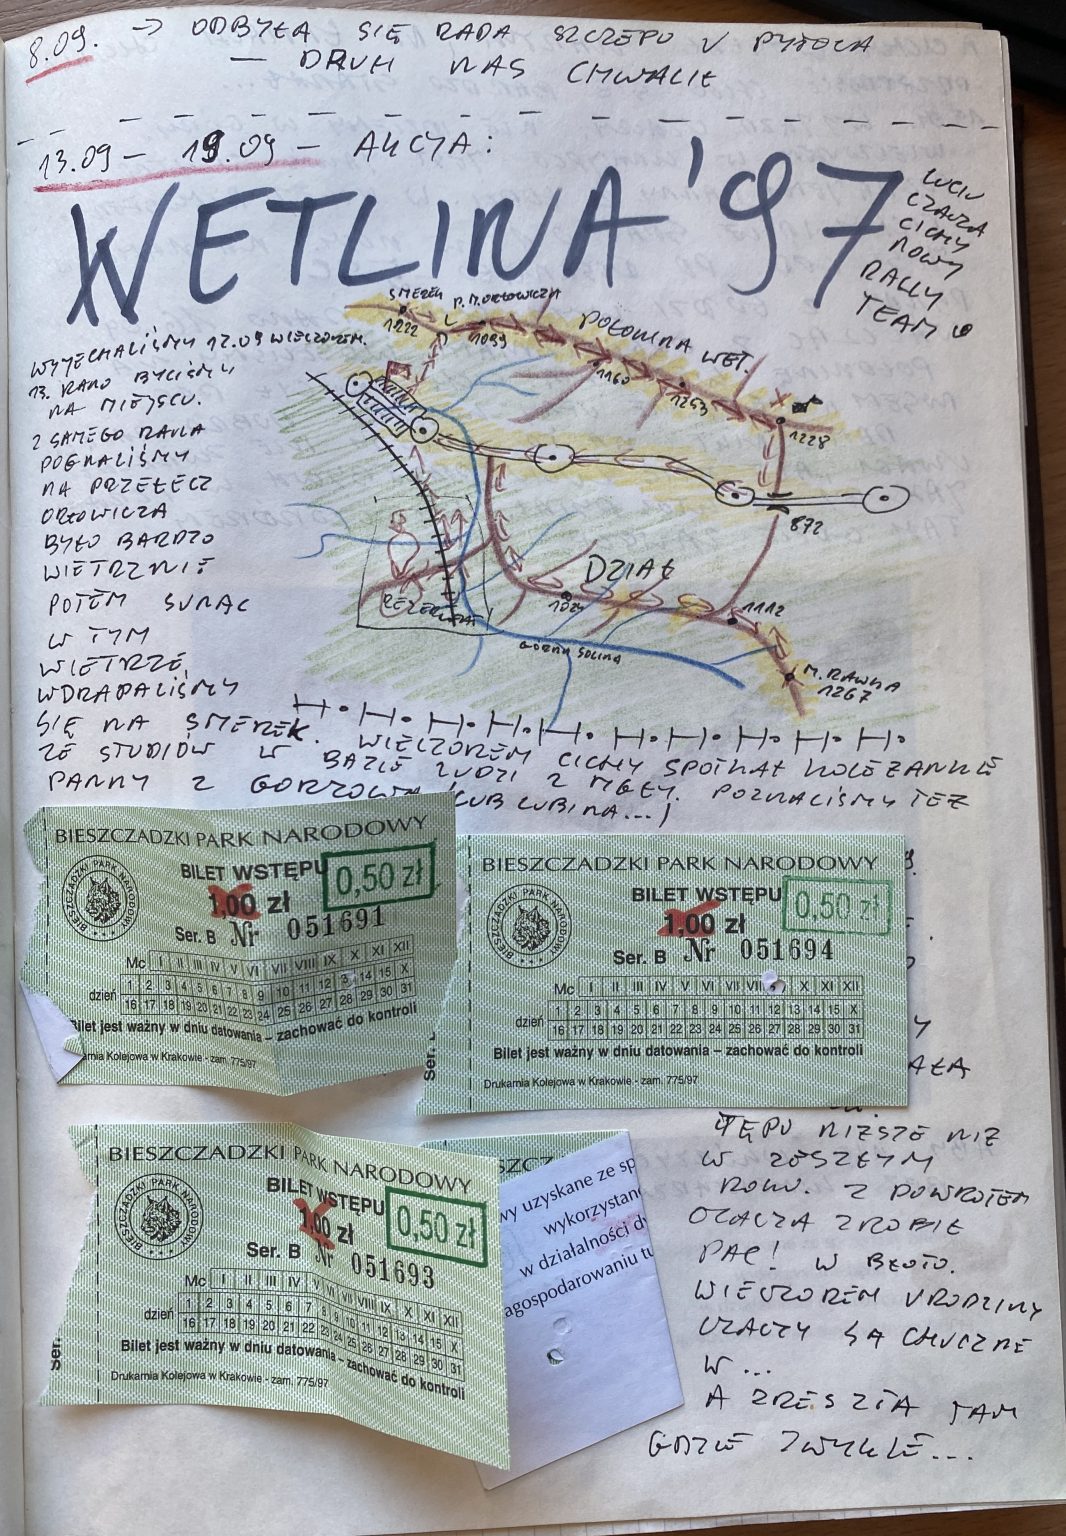 8.09. → ODBYŁA SIĘ RADA SZCZEPU U PYTOCA
— DRUH NAS CHWALIŁ
13.09 – 19.09 – AKCJA:
WETLINA '97
WUJU
CZACZA
CICHY
NOWY
RALLY
TEAM
SMEREK
1222
P. M. ORŁOWICZA
1099
POŁONINA WET.
1160
1253
1228
872
DZIAŁ
1112
GÓRNA SOLINA
M. RAWKA
1267
WYJECHALIŚMY 12.09 WIECZOREM.
13. RANO BYLIŚMY
NA MIEJSCU.
Z SAMEGO RANA
POGNALIŚMY
NA PRZEŁĘCZ
ORŁOWICZA
BYŁO BARDZO
WIETRZNIE
POTEM SUNĄC
W TYM
WIETRZE
WDRAPALIŚMY
SIĘ NA SMEREK. WIECZOREM CICHY SPOTKAŁ KOLEŻANKĘ
ZE STUDIÓW W BAZIE LUDZI Z MGŁY. POZNALIŚMY TEŻ
PANNY Z GORZOWA (LUB LUBINA...)
BIESZCZADZKI PARK NARODOWY
BILET WSTĘPU
0,50 zł
1,00 zł
Ser. B Nr 051691
Mc I II III IV V VI VII VIII IX X XI XII
dzień
1 2 3 4 5 6 7 8 9 10 11 12 13 14 15 X
16 17 18 19 20 21 22 23 24 25 26 27 28 29 30 31
Bilet jest ważny w dniu datowania – zachować do kontroli
arnia Kolejowa w Krakowie - zam. 775/97
BIESZCZADZKI PARK NARODOWY
BILET WSTĘPU
0,50 zł
1,00 zł
Ser. B Nr 051694
Mc I II III IV V VI VII X XI XII
dzień
1 2 3 4 5 6 7 8 9 10 11 12 13 14 15 X
16 17 18 19 20 21 22 23 24 25 26 27 28 29 30 31
Bilet jest ważny w dniu datowania – zachować do kontroli
Drukarnia Kolejowa w Krakowie - zam. 775/97
Ser.
BIESZCZADZKI PARK NARODOWY
BILET WSTĘPU
0,50 zł
1,00 zł
Ser. B Nr 051693
Mc I II III IV V VI VII VIII IX X XI XII
dzień
1 2 3 4 5 6 7 8 9 10 11 12 13 14 15 X
16 17 18 19 20 21 22 23 24 25 26 27 28 29 30 31
Bilet jest ważny w dniu datowania – zachować do kontroli
Drukarnia Kolejowa w Krakowie - zam. 775/97
Ser.
SZCZ
wy uzyskane ze sp
wykorzystane
w działalności dy
agospodarowaniu tu
TĘPU NIŻSZE NIŻ
W ZESZŁYM
ROKU. Z POWROTEM
CZACZA ZROBIŁ
PAC! W BŁOTO.
WIECZOREM URODZINY
CZACZY SĄ HUCZNE
W...
A ZRESZTĄ TAM
GDZIE ZWYKLE...